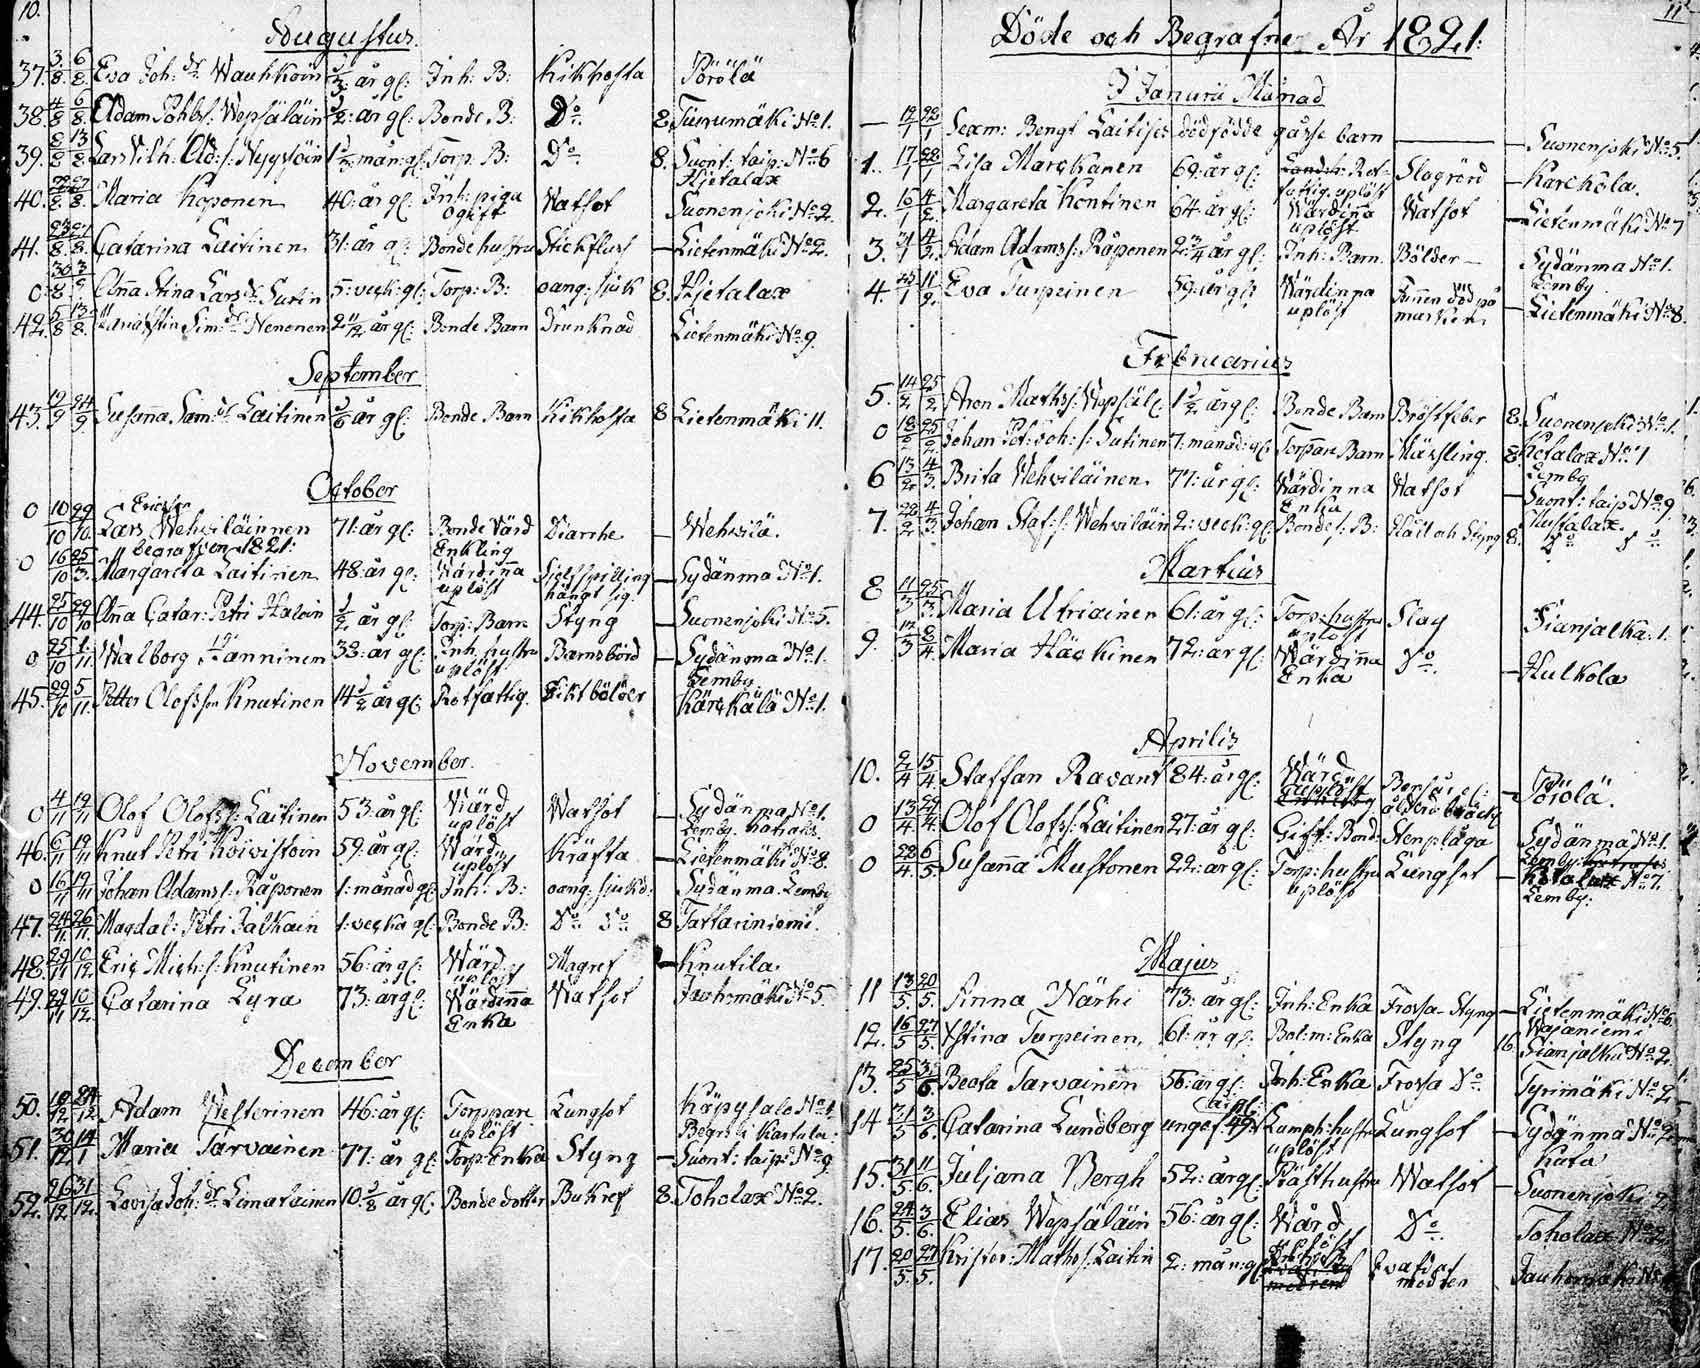 10.
Augustus
37. 3/8 6/8 Eva Joh: dr Wauhkoin 1/3: år gl: Inh: B: Kikhosta Pörölä
38. 4/8 6/8 Adam Påhls: Wepsäläin 1/2: år gl: Bonde B: Do 8. No 1.
39. 8/8 13/8 Lars Vilh: Ad: s: 1 1/2 mån: gl: Torp: B: Do 8. Suont: taip: No 6
Hjetalax
40. Maria Koponen 40: år gl: Inh: piga Watsot Suonenjoki No 2.
ogift
41. 23/8 27/8 Catarina Laitinen 31: år gl: Bonde hustru Stickfluss — Lietenmäki No 2.
0 30/8 3/9 Anna Stina Lars dr Sutin 5: veck: gl: Torp: B: oang: sjuk 8. Hjetalax
42. 5/8 13/8 Sim: dr Nenonen 2 11/12 år gl: Bonde Barn Drunknad Lietenmäki No 9.
September
43. 19/9 24/9 Susanna Sam: dr Laitinen 5/6 år gl: Bonde Barn Kikhosta 8 Lietenmäki 11.
October
Ericsson
0 10/10 29/10 Lars Wehviläinnen 71: år gl: Bonde Värd Diarrhe — Wehvilä.
begrafven 1821: Enkling
0 16/10 25/3 Margareta Laitinen 48: år gl: Wärdinna Sjelfspilling — Sydänma No 1.
uplöst hängt sig.
44. 25/10 29/10 Anna Catar: Petri Haloin 1/2 år gl: Torp: Barn Styng — Suonenjoki No 5.
0 25/10 1/11 Walborg Hänninen 32: år gl: Inh. hustru Barnsbörd — Sydänma No 1.
uplöst Lemby
45. 29/10 5/11 Petter Olofsson Knutinen 14 1/2 år gl: Rotfattig. Giktbölder Kärckälä No 1.
November
0 4/11 12/11 Olof Olofss: Laitinen 53: år gl: Wärd Watsot — Sydänma No 1.
uplöst Lemby.
46. 6/11 12/11 Knut Petri Koivistoin 59: år gl: Wärd Kräfta — Lietenmäki No 8.
uplöst
0 16/11 19/11 Johan Adams s: Räponen 1: månad gl: Inh: B: oang: sjukd: Sydänma. Lemby
47. 24/11 26/11 Magdal: Petri Jalkain 1: vecka gl: Bonde B: Do Do 8 Tattariniemi.
48. 29/11 10/12 Eric Mich: s: Knutinen 56: år gl: Wärd Magref — Knutila
uplöst
49. 29/11 10/12 Catarina Lyra 73: år gl: Wärdinna Watsot Jauhomäki No 5.
Enka
December
50. 10/12 24/12 Adam Westerinen 46: år gl: Torppare Lungsot Käpysalo No 1
uplöst Begr: i Karttula:
51. 30/12 14/1 Maria Tarvainen 77: år gl: Torp: Enka Styng — Suont: taip: No 9
52. 26/12 31/12 Lovisa Joh: dr Limatainen 10 5/8 år gl: Bonde dotter Bukref 8. Toholax No 2.
11
Döde och Begrafne År 1821:
I Januarii Månad
— Sexm: Bengt Laitises dödfödde gosse barn — Suonenjoki No 5.
1. 17/1 28/1 Lisa Marckanen 69: år gl: Slagrörd — Karckola.
fattig. uplöst
2. 16/1 4/2 Margareta Kontinen 64: år gl: Wärdinna Watsot — Lietenmäki No 7
uplöst
3. 31/1 4/2 Adam Adams s: Räponen 2 3/4 år gl: Inh: Barn. Bölder — Sydänma No 1.
Lemby
4. 25/1 11/2 Eva Turpeinen 59: år gl: Wärdinna Funnen död på — Lietenmäki No 8.
uplöst marken
Februarius
5. 14/2 25/2 Aron Maths s: Wepsäl: 1 1/2 år gl: Bonde Barn Bröstfeber 8. Suonenjoki No 1.
0 18/2 25/2 Johan Pet: Joh: s: Sutinen 7: månad: gl: Torpare Barn Mässling. 8. Kotalax No 1
Lemby
6 13/2 4/3 Brita Wehviläinen 77: år gl: Wärdinna Watsot — Suont: taip: No 9.
Enka
7. 28/2 4/3 Johan Staf: s: Wehviläin 2: veck: gl: Bonde s: B: Håll och Styng 8. Do Do
Martius
8 11/3 25/3 Maria Utriainen 61: år gl: Torp: hustru Slag Sianjalka: 1.
uplöst
9. 8/4 Maria Häckinen 72: år gl: Wärdinna Do — Hulkola
Enka
Aprilis
10. 2/4 15/4 Staffan Ravant 84: år gl: Wärd — Pörölä.
uplöst ålderdoms bräckl:
0 13/4 Olof Olofss: Laitinen 27: år gl: Gift: Bond: Stenplåga Sydänma No 1.
Lemby
0 22/4 6/5 Susanna Mustonen 22: år gl: Torp: hustru Lungsot — Kotalax No 7.
uplöst Lemby.
Majus
11 13/5 20/5 Anna Närhi 73: år gl: Inh: Enka Frossa Styng — Lietenmäki No 6.
Wajaniemi
12. 16/5 27/5 Stina Turpeinen 61: år gl: Bol: m: Enka Styng 16. Sianjalka No 2.
13. 25/5 3/6 Beata Tarvainen 56: år gl: Inh: Enka Frossa Do Tyrimäki No 2
år gl:
14 31/5 3/6 Catarina Lundberg ungef 49: Lamph: hustru Lungsot — Sydänma No 2
uplöst Kuta
15. 31/5 11/6 Juljana Bergh 52: år gl: hustru Watsot — Suonenjoki 2.
16. 24/5 3/6 Elias Wepsäläin 56: år gl: Wärd Do Toholax No 2
uplöst
17. 20/5 27/5 Krister: Maths s: Laitin 2: mån: gl: qvafd af Jauhomäki No
modren modren